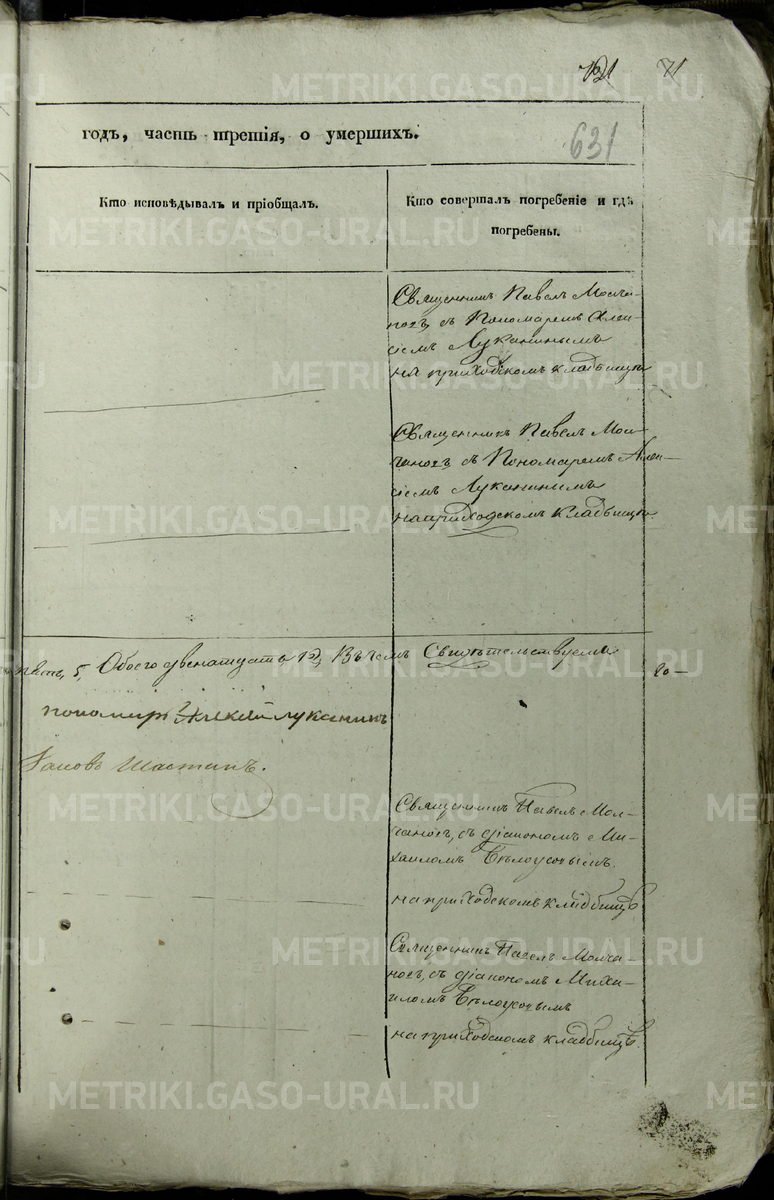 71
631
годъ, часть третія, о умершихъ.
Кто исповѣдывалъ и пріобщалъ.
Кто совершалъ погребеніе и гдѣ
погребены.
Священникъ Павелъ Молча-
новъ, съ Пономаремъ Алек-
сіемъ Луканинымъ
на приходскомъ кладбищѣ
Священникъ Павелъ Мол-
чановъ съ Пономаремъ Алек-
сіемъ Луканинымъ
на приходскомъ кладбищѣ.
пять, 5, Обоего двенатцать 12, Въ чемъ Свидѣтельствуемъ
20 —
пономарь Алексѣй Луканинъ
Шастинъ.
Священникъ Павелъ Мол-
чановъ, съ діакономъ Ми-
хаиломъ Бѣлоусовымъ.
на приходскомъ кладбищѣ
Священникъ Павелъ Молча-
новъ, съ діакономъ Миха-
иломъ Бѣлоусовымъ
на приходскомъ кладбищѣ.
METRIKI.GASO-URAL.RU